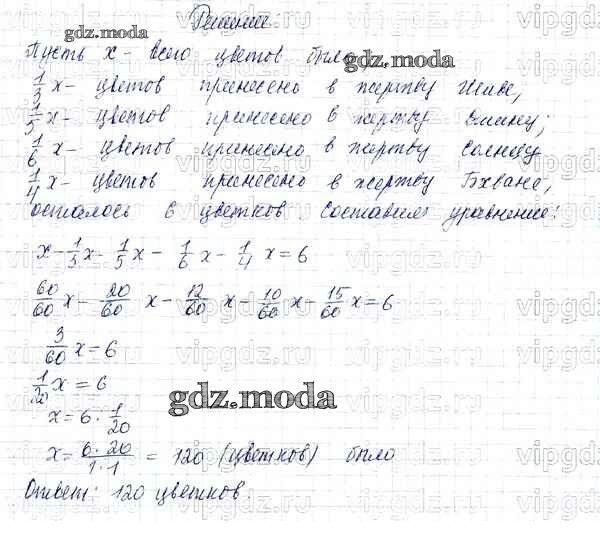 Решение:
Пусть x - всего цветов было,
1/3 x - цветов принесено в жертву Шиве,
1/5 x - цветов принесено в жертву
1/6 x - цветов принесено в жертву Солнцу
1/4 x - цветов принесено в жертву Бхване,
осталось 6 цветков. Составим уравнение:
x - 1/3 x - 1/5 x - 1/6 x - 1/4 x = 6
60/60 x - 20/60 x - 12/60 x - 10/60 x - 15/60 x = 6
3/60 x = 6
1/20 x = 6
x = 6 · 1/20
x = 6 · 20/1 · 1 = 120 (цветков) было
Ответ: 120 цветков.
gdz.moda
gdz.moda
gdz.moda
vipgdz.ru